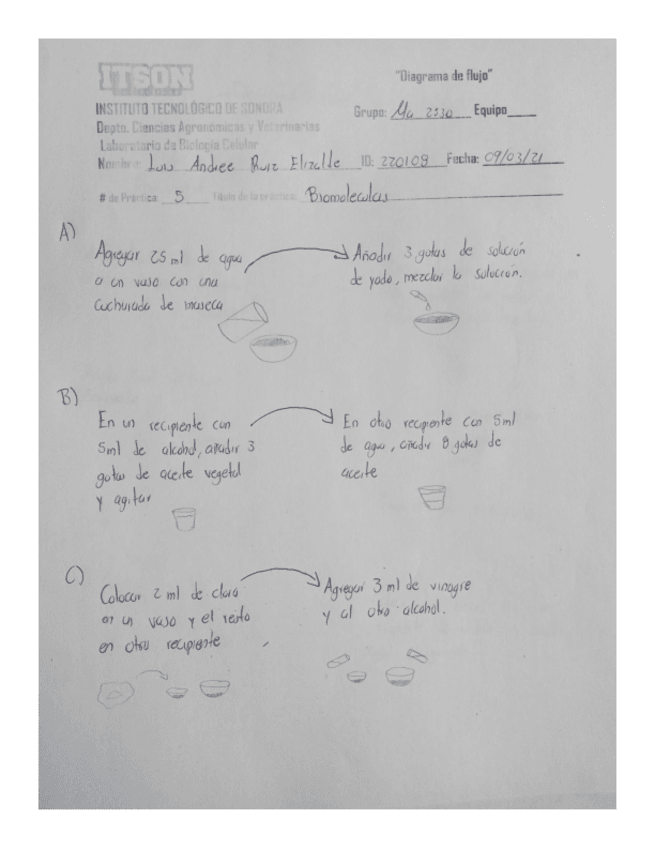 ITSON
"Diagrama de flujo"
INSTITUTO TECNOLÓGICO DE SONORA
Grupo: Ma 2530 Equipo
Depto. Ciencias Agronómicas y Veterinarias
Laboratorio de Biología Celular
Nombre: Luis Andree Ruiz Elizalde ID: 220109 Fecha: 09/03/21
# de Práctica 5 Título de la práctica: Biomoleculas
A)
Agregar 25 ml de agua
a un vaso con una
cucharada de maseca
Añadir 3 gotas de solución
de yodo, mezclar la solución.
B)
En un recipiente con
5ml de alcohol, añadir 3
gotas de aceite vegetal
y agitar
En otro recipiente con 5ml
de agua, añadir 8 gotas de
aceite
C)
Colocar 2 ml de clara
en un vaso y el resto
en otro recipiente
Agregar 3 ml de vinagre
y al otro alcohol.